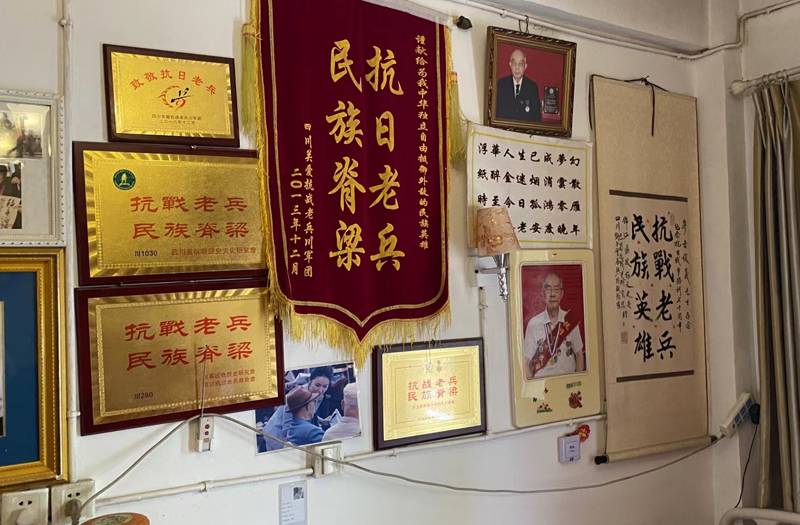 致敬抗日老兵
抗戰老兵
民族脊梁
川1030
抗戰老兵
民族脊梁
川290
謹献给为我中华独立自由抵御外敌的民族英雄
抗日老兵
民族脊梁
四川关爱抗战老兵川军团
二〇一三年十二月
浮華人生已成夢幻
紙醉金迷烟消雲散
時至今日孤鴻零雁
老安度晚年
抗战老兵
民族脊梁
抗戰老兵
民族英雄